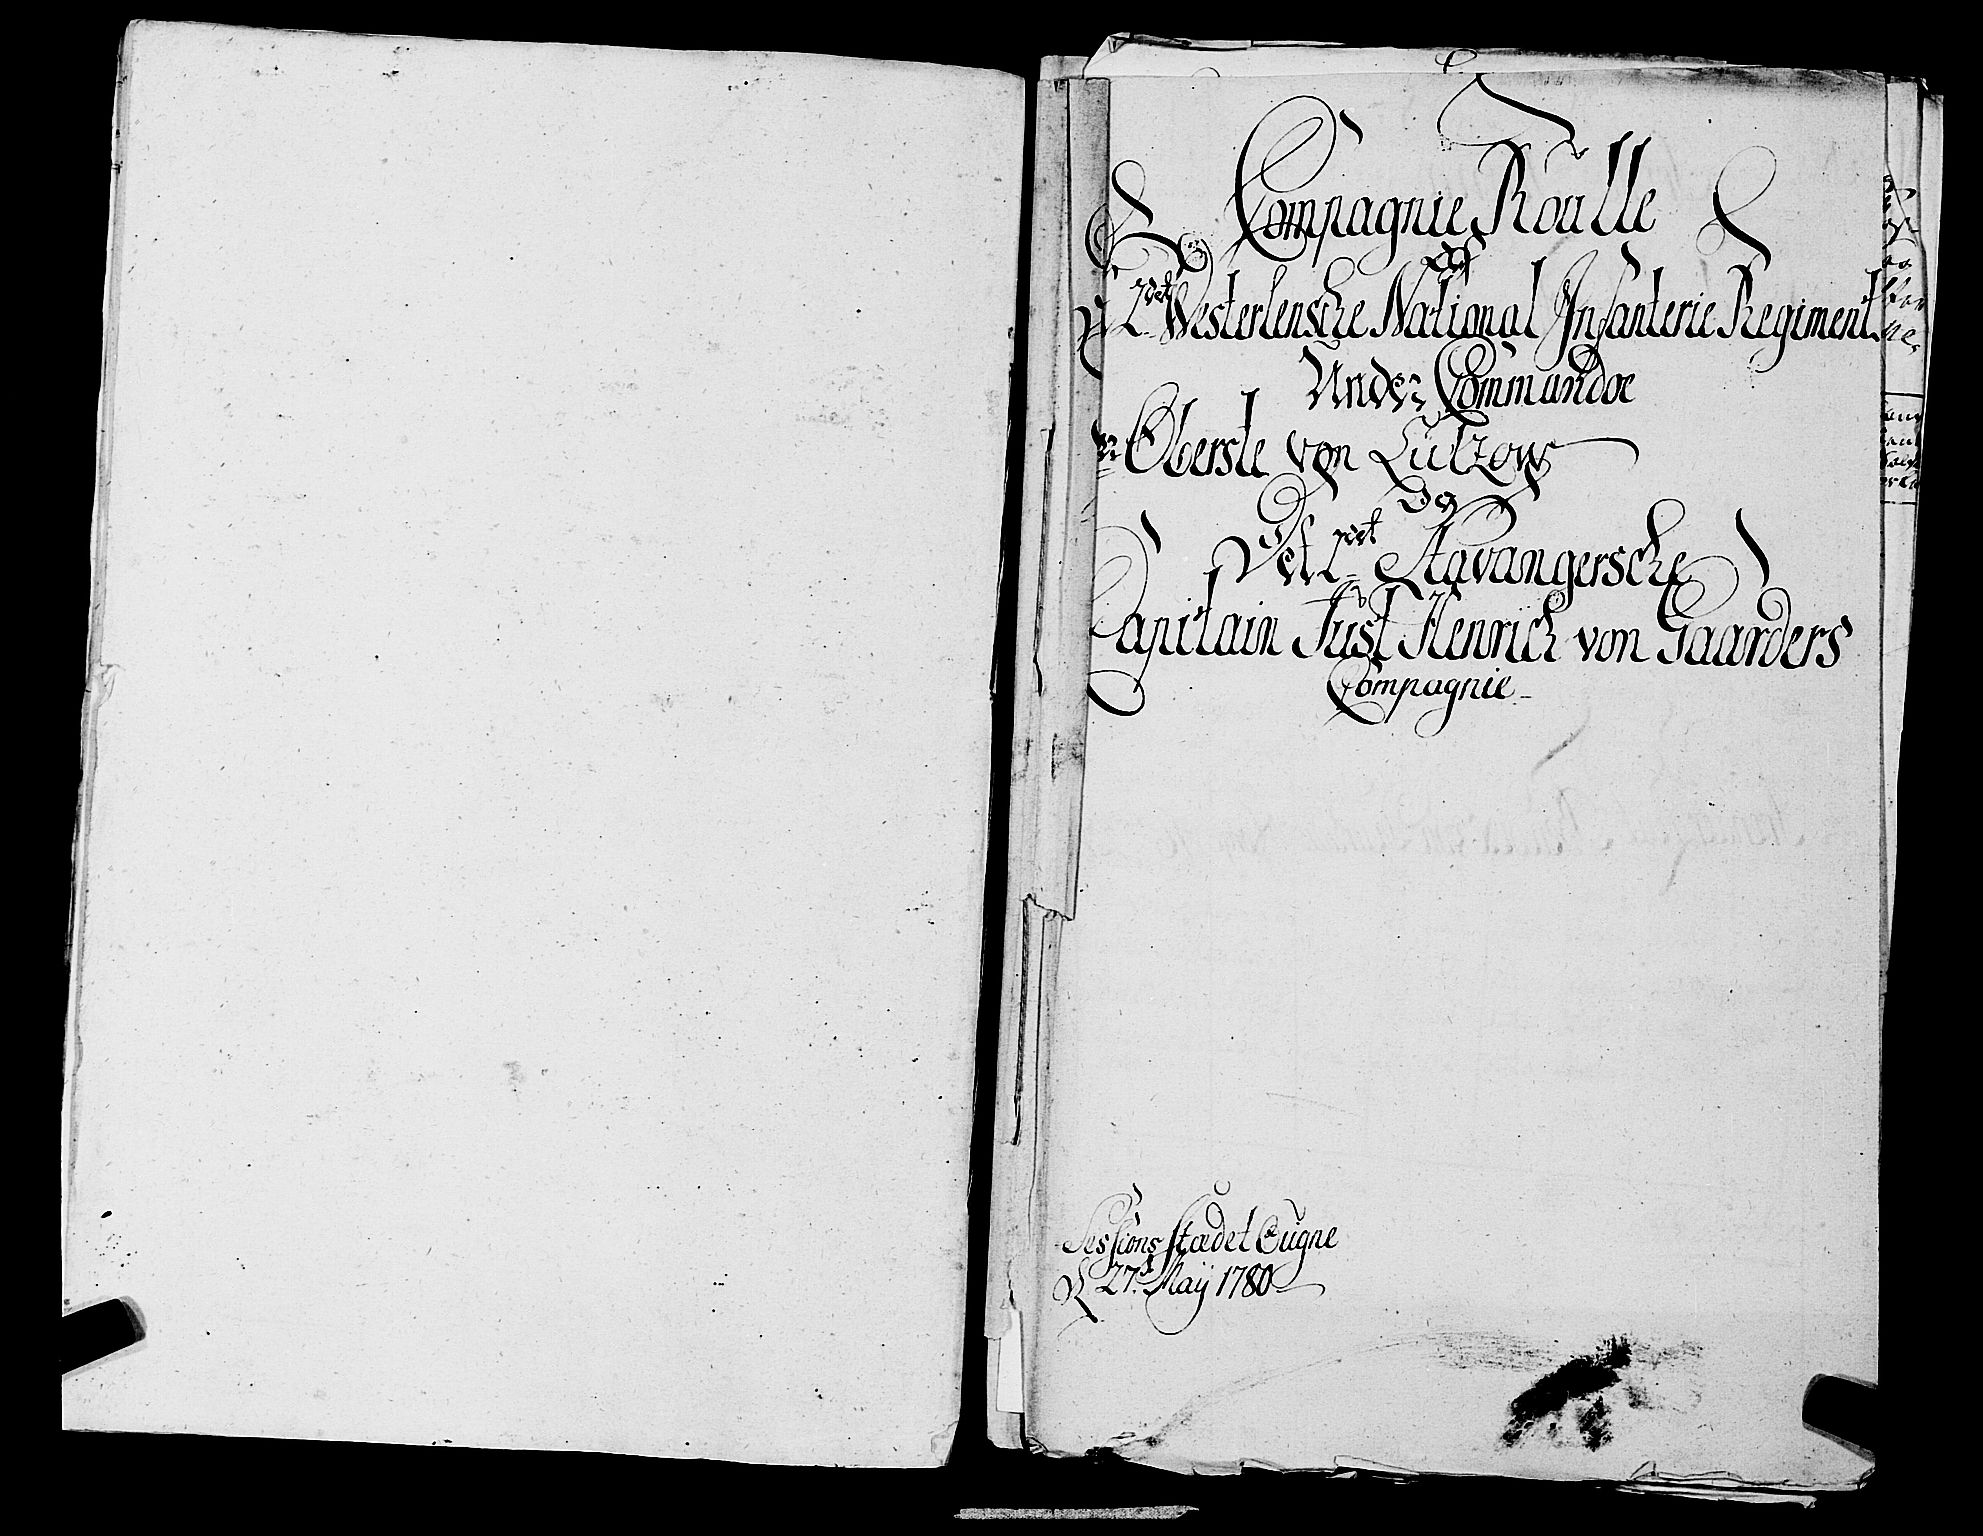 Compagnie Roulle
af
2det Westerlensche National Infanterie Regiment
Under Commando
Oberste von Lützow
og
Det 2det Stavangersche
Capitain Just Henrich von Gaarders
Compagnie
Sessions Stædet Øugne
d 27d Maÿ 1780